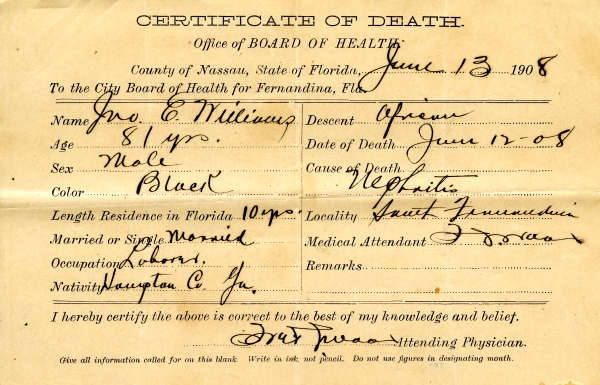 CERTIFICATE OF DEATH.
Office of BOARD OF HEALTH
County of Nassau, State of Florida, June 13 1908
To the City Board of Health for Fernandina, Fla.
Name Jno. E. Williams
Age 81 yrs.
Sex Male
Color Black
Length Residence in Florida 10 yrs.
Married or Single Married
Occupation Laborer.
Nativity Co. Ga.
Descent African
Date of Death June 12-08
Cause of Death Nephritis
Locality Fernandina
Medical Attendant
Remarks
I hereby certify the above is correct to the best of my knowledge and belief.
Attending Physician.
Give all information called for on this blank. Write in ink, not pencil. Do not use figures in designating month.